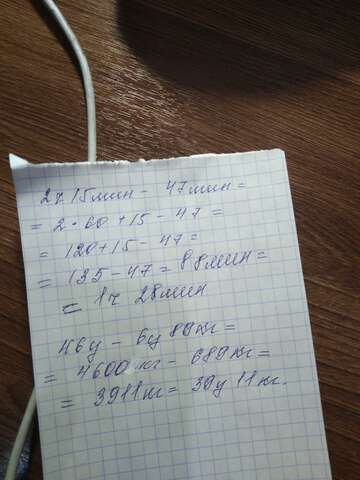 2ч 15мин - 47мин =
= 2 · 60 + 15 - 47 =
= 120 + 15 - 47 =
= 135 - 47 = 88мин =
= 1ч 28мин
46ц - 6ц 89кг =
= 4600 кг - 689кг =
= 3911кг = 39ц 11кг.